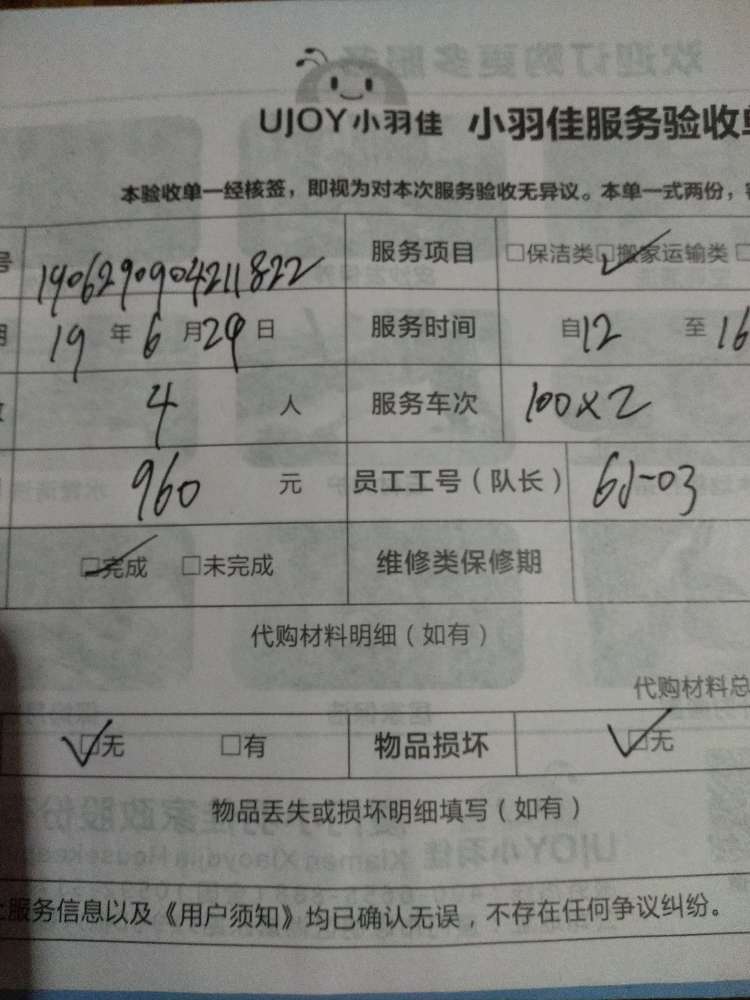 UJOY小羽佳 小羽佳服务验收单
本验收单一经核签，即视为对本次服务验收无异议。本单一式两份，
号 1906290904211822 服务项目 □保洁类 ☑搬家运输类 □
期 19 年 6 月 29 日 服务时间 自12 至 16
数 4 人 服务车次 100×2
960 元 员工工号（队长） 61-03
☑完成 □未完成 维修类保修期
代购材料明细（如有）
代购材料总
☑无 □有 物品损坏 ☑无
物品丢失或损坏明细填写（如有）
上服务信息以及《用户须知》均已确认无误，不存在任何争议纠纷。